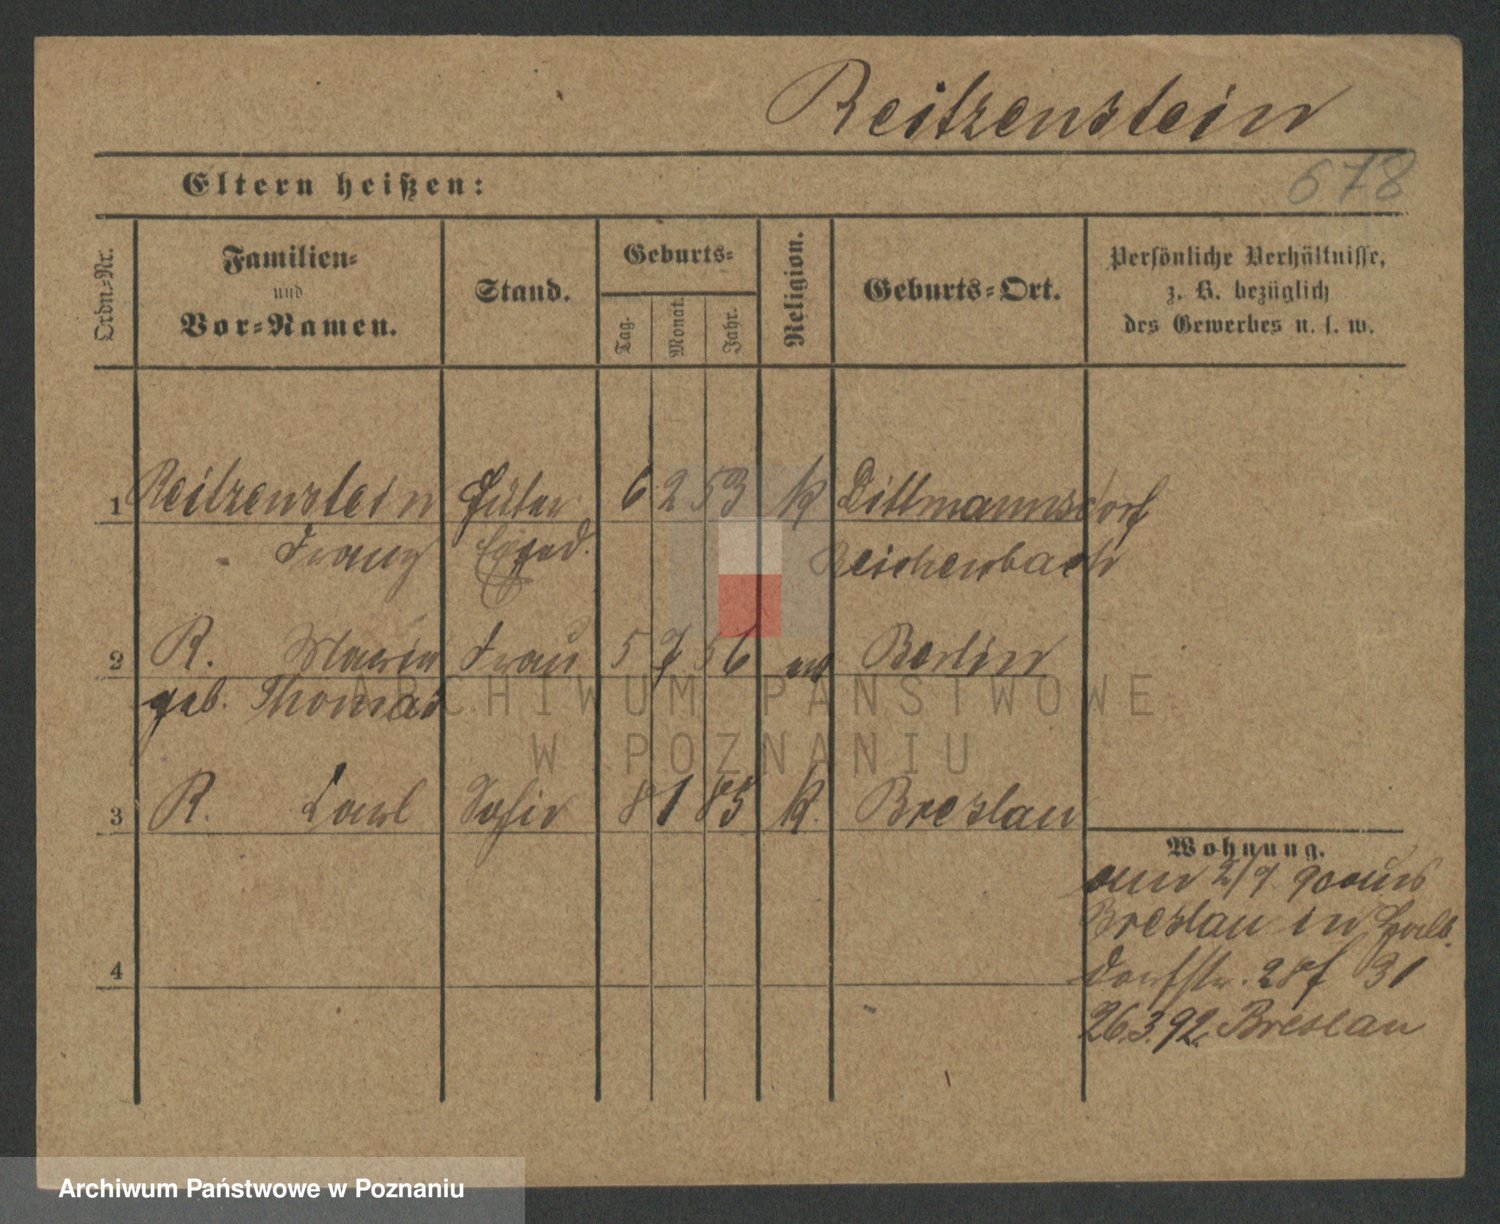 Reitzenstein
678
Eltern heißen:
Ordn.-Nr.
Familien-
und
Vor-Namen.
Stand.
Geburts-
Tag.
Monat.
Jahr.
Religion.
Geburts-Ort.
Persönliche Verhältnisse,
z. B. bezüglich
des Gewerbes u. s. w.
1 Reitzenstein Güter 6 2 53 k Dittmannsdorf
Franz Exped. Reichenbach
2 R. Maria Frau 5 7 56 ev Berlin
geb. Thomas
3 R. Carl Sohn 8 1 85 k. Breslau
4
Wohnung.
am 2/9. 90 aus
Breslau in Halb
dorfstr. 31
26.3.92. Breslau
ARCHIWUM PAŃSTWOWE
W POZNANIU
Archiwum Państwowe w Poznaniu